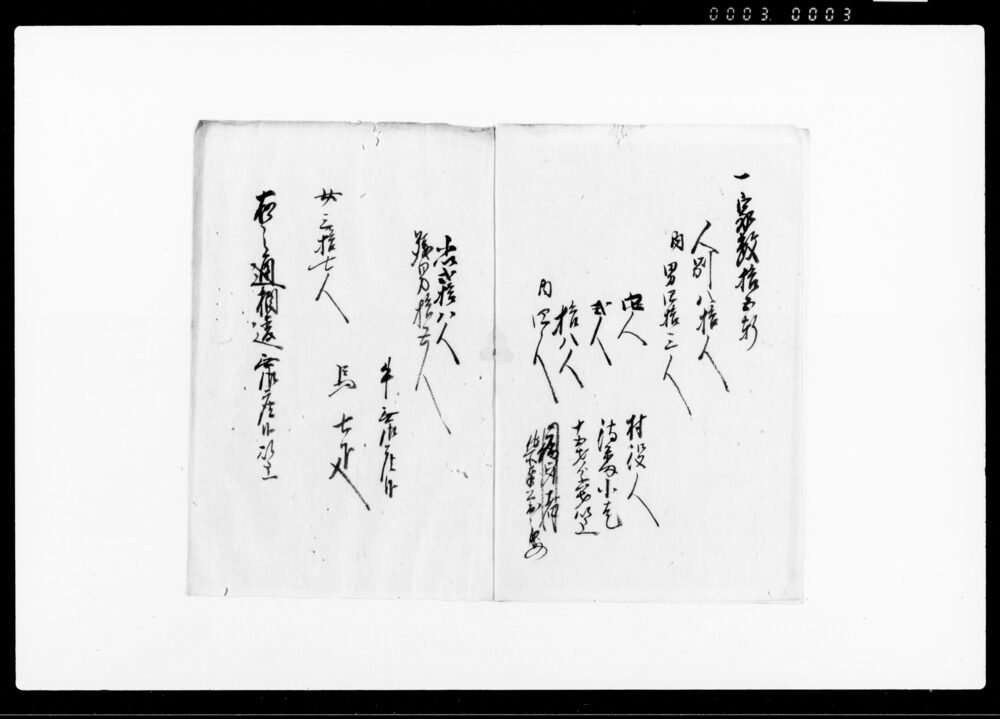 0003. 0003
一家数拾五軒
人別八拾人
内男四拾三人
四人 村役人
弐人
拾八人 十五才
内四人
〆弐拾八人
残男拾五人
女三拾七人
牛無御座候
馬七疋
右之通相違無御座候以上